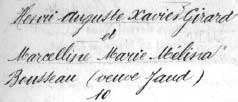 Henri Auguste Xavier Girard
et
Marcelline Marie Mélina
Bousseau (veuve Jaud)
10